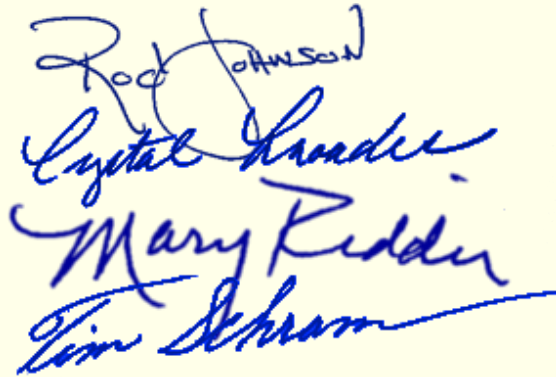 Rod Johnson
Crystal
Mary Ridder
Tim Schram